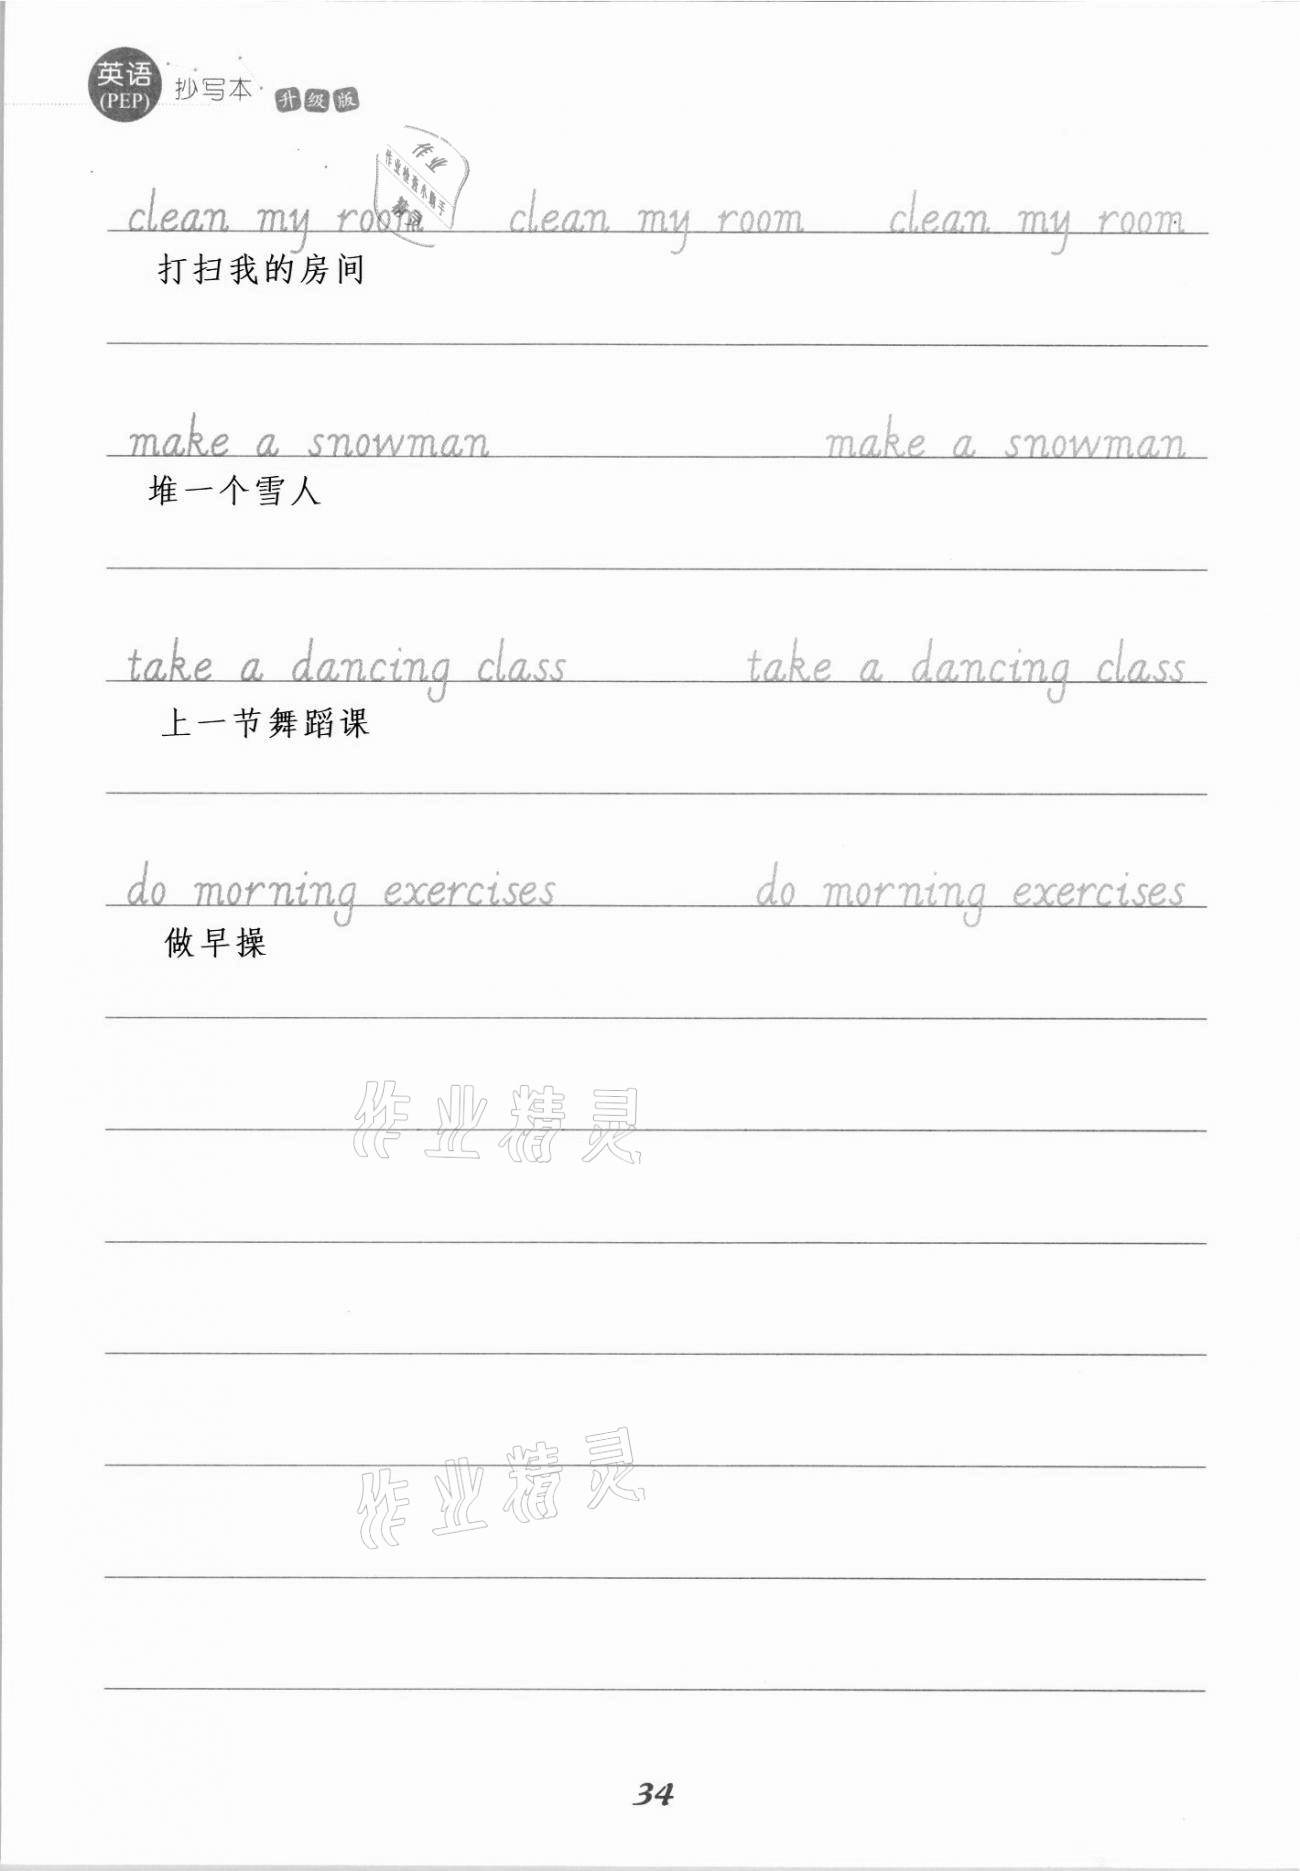 英语
(PEP)
抄写本
升级版
作业
作业检查小助手
clean my room clean my room clean my room
打扫我的房间
make a snowman make a snowman
堆一个雪人
take a dancing class take a dancing class
上一节舞蹈课
do morning exercises do morning exercises
做早操
作业精灵
作业精灵
34